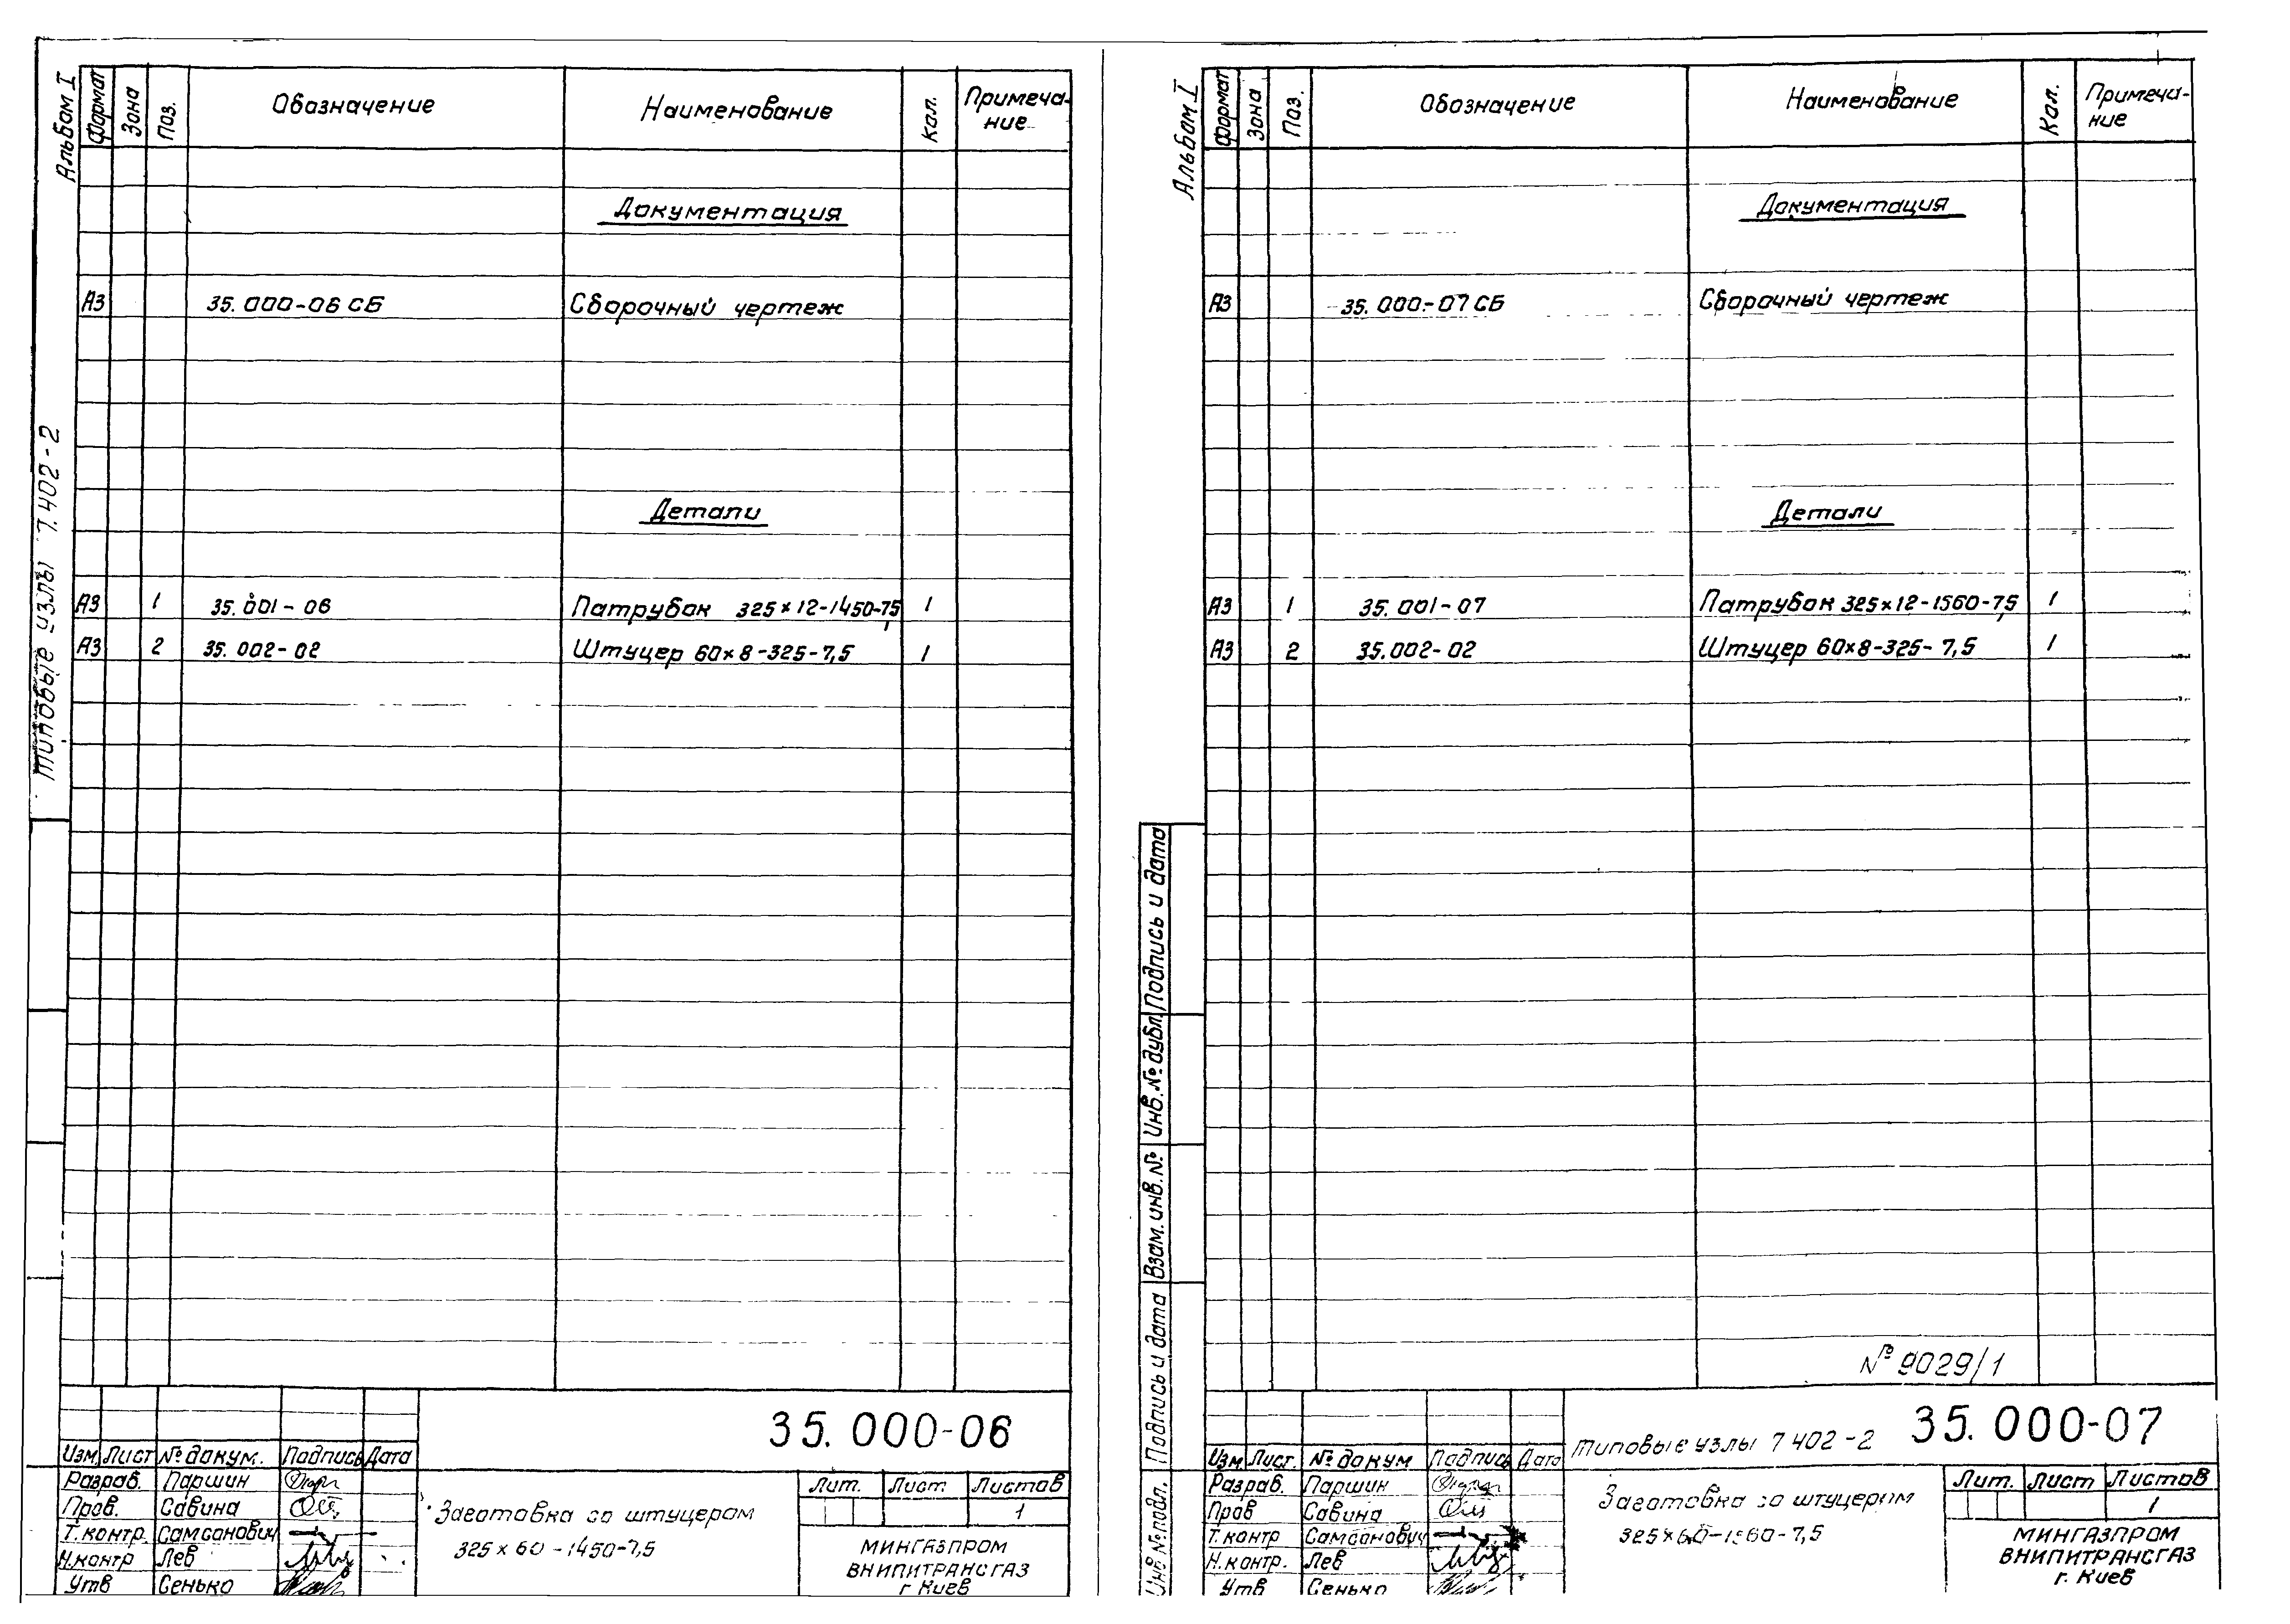 Альбом I
Типовые узлы 7.402-2
Формат Зона Поз. Обозначение Наименование Кол. Примеча-
ние
Документация
А3 35.000-06 СБ Сборочный чертеж
Детали
А3 1 35.001-06 Патрубок 325×12-1450-7,5 1
А3 2 35.002-02 Штуцер 60×8-325-7,5 1
35.000-06
Изм. Лист № докум. Подпись Дата
Разраб. Паршин
Пров. Савина
Т.контр. Самсанович
Н.контр Лев
Утв Сенько
Заготовка со штуцером
325×60-1450-7,5
Лит. Лист Листов
1
МИНГАЗПРОМ
ВНИПИТРАНСГАЗ
г Киев
Альбом I
Формат Зона Поз. Обозначение Наименование Кол. Примеча-
ние
Документация
А3 35.000-07 СБ Сборочный чертеж
Детали
А3 1 35.001-07 Патрубок 325×12-1560-7,5 1
А3 2 35.002-02 Штуцер 60×8-325-7,5 1
Подпись и дата
Инв.№ дубл.
Взам. инв. №
Подпись и дата
Инв № подл.
№ 9029/1
Типовые узлы 7 402-2 35.000-07
Изм. Лист. № докум Подпись Дата
Разраб. Паршин
Пров Савина
Т.контр Самсанович
Н.контр. Лев
Утв Сенько
Заготовка со штуцером
325×60-1560-7,5
Лит. Лист Листов
1
МИНГАЗПРОМ
ВНИПИТРАНСГАЗ
г. Киев